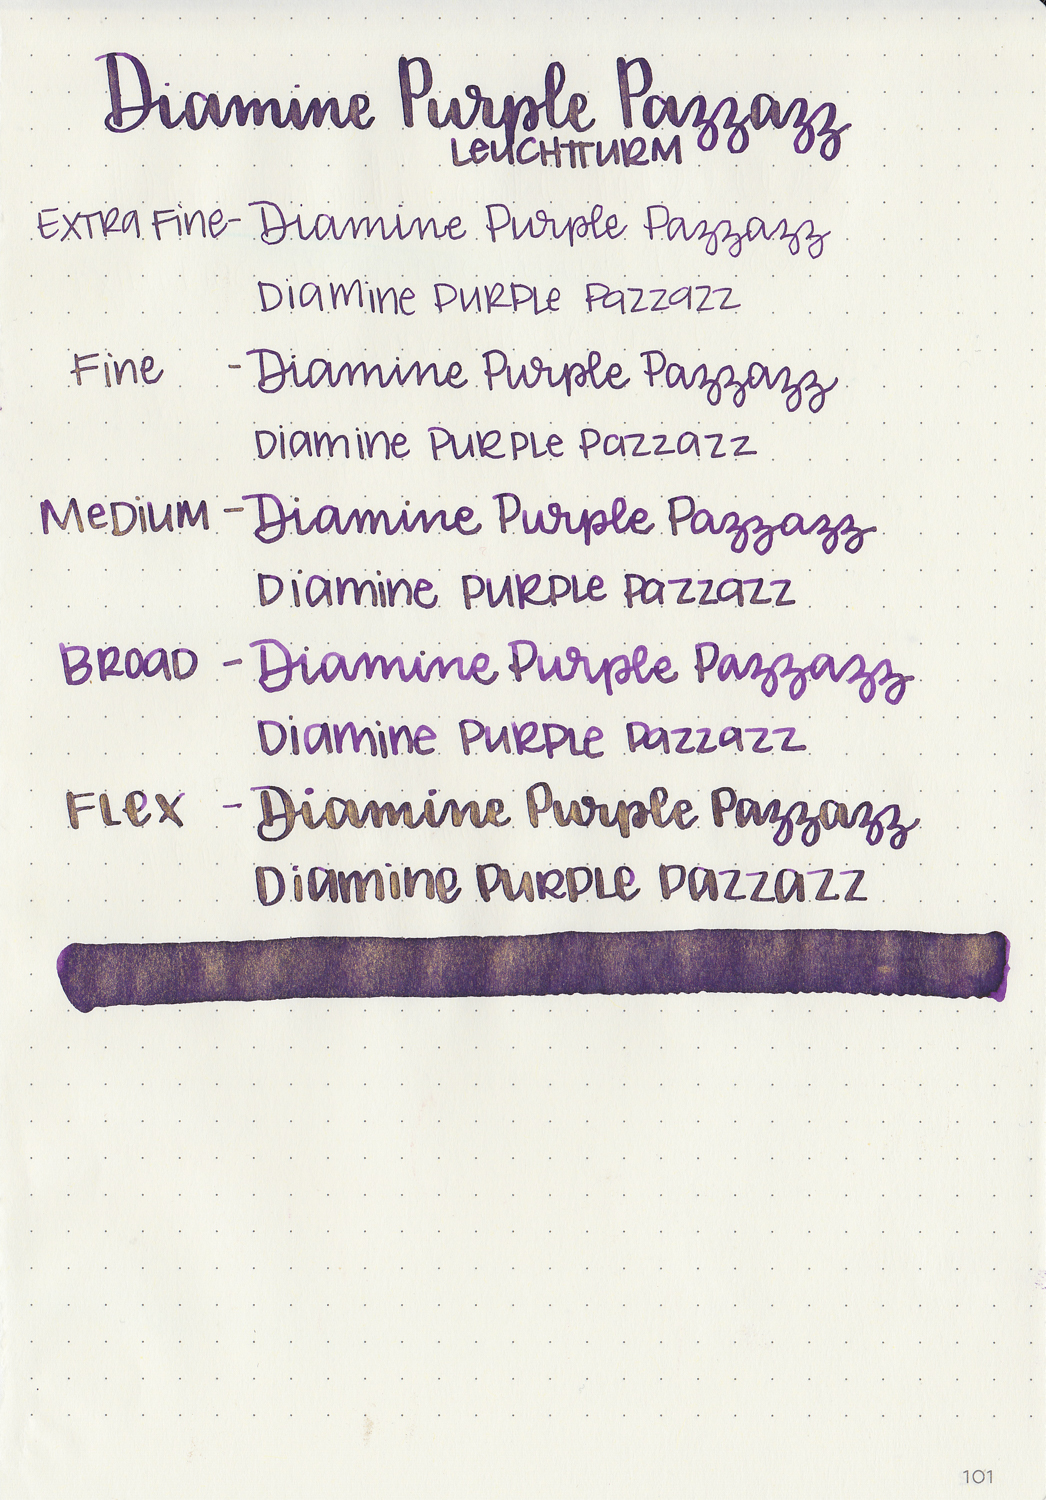 Diamine Purple Pazzazz
LEUCHTTURM
EXTRA Fine - Diamine Purple Pazzazz
Diamine PURPLE Pazzazz
Fine - Diamine Purple Pazzazz
Diamine PURPLE Pazzazz
MEDIUM - Diamine Purple Pazzazz
Diamine PURPLE Pazzazz
BROAD - Diamine Purple Pazzazz
Diamine PURPLE Pazzazz
FLEX - Diamine Purple Pazzazz
Diamine PURPLE Pazzazz
101